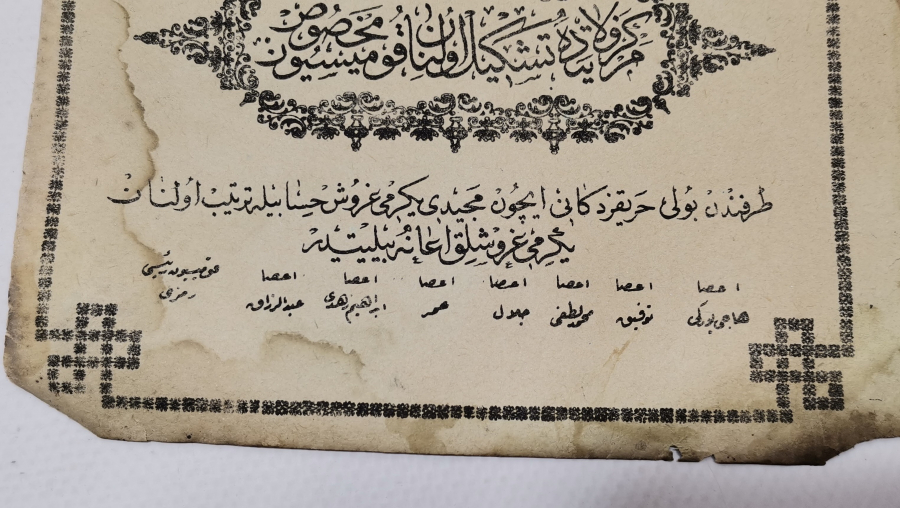 مركز ولايتده تشكيل اولنان قوميسيون مخصوص
طرفندن بولی حريقزدكانی ايچون مجيدی يكرمی غروش حسابيله ترتيب اولنان
يكرمی غروشلق اعانه بيليتيدر
اعضا اعضا اعضا اعضا اعضا اعضا اعضا قوميسيون رئيسی
توفيق محمد لطفی جلال عمر ابراهيم زهدی عبدالرزاق رمزی